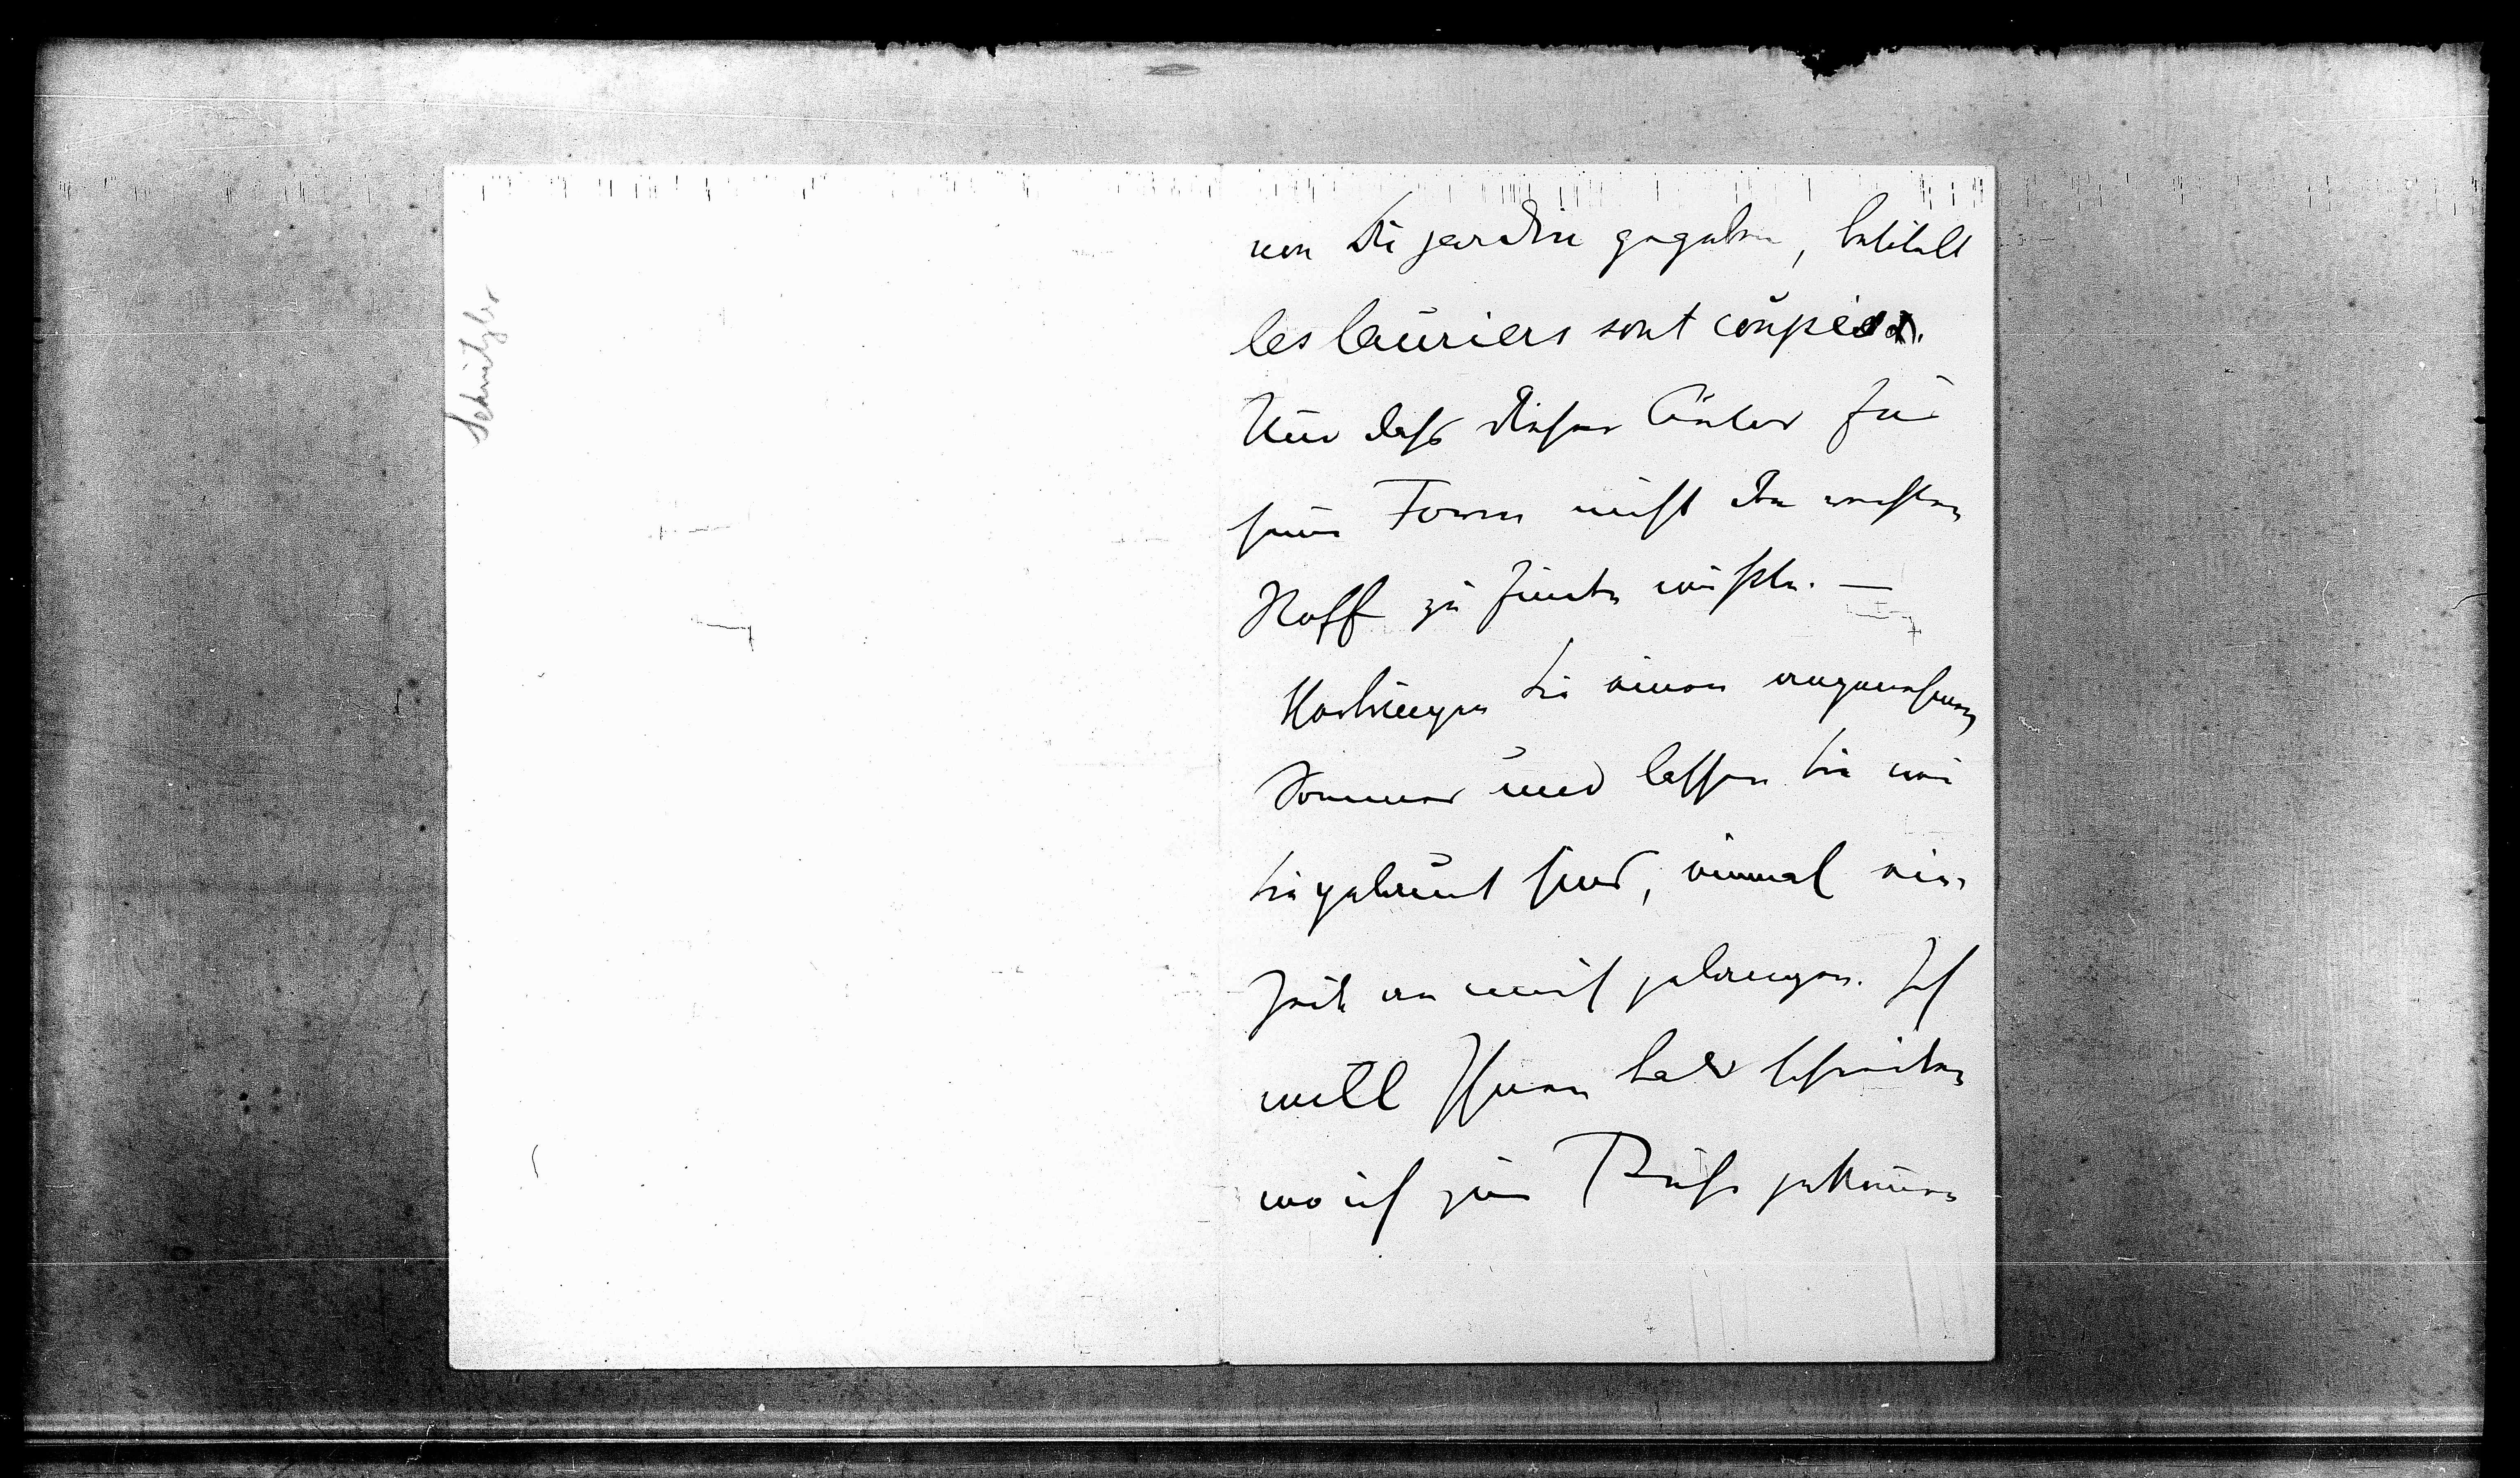 Schnitzler
von Dujardin gegeben, betitelt
les lauriers sont coupés.
Nur daß dieser Autor für
seine Form nicht den rechten
Stoff zu finden wußte. —
Verbringen Sie einen angenehmen
Sommer und lassen Sie wie
Sie gelaunt sind, einmal eine
Zeile an mich gelangen. Ich
will Ihnen bald schreiben
wo ich zur Ruhe gekommen